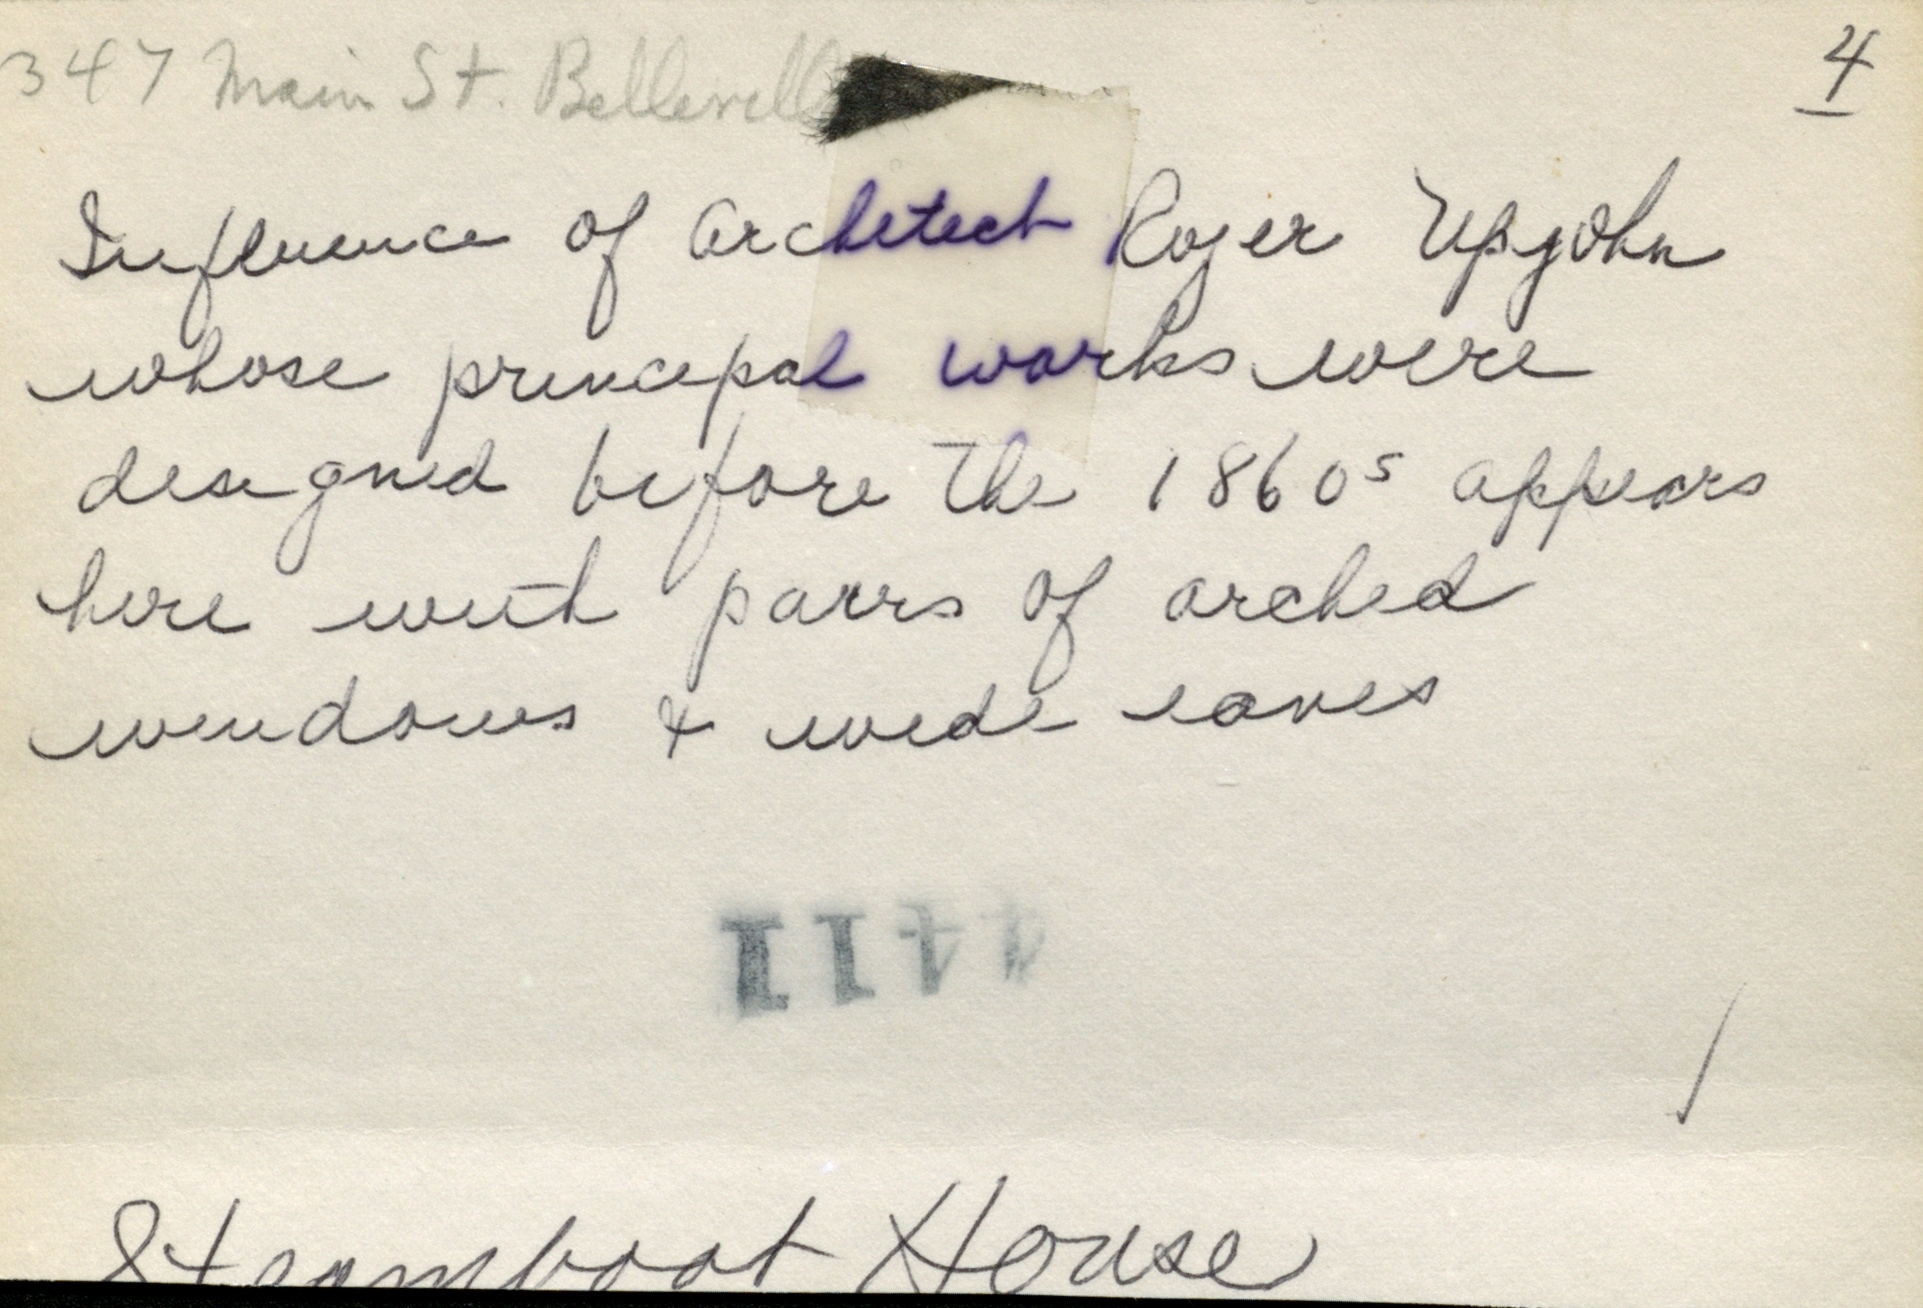 347 Main St. Belleville
4
Influence of architect Rojer Upjohn
whose principal works were
designed before the 1860s appears
here with pairs of arched
windows & wide eaves
1144
Steamboat House